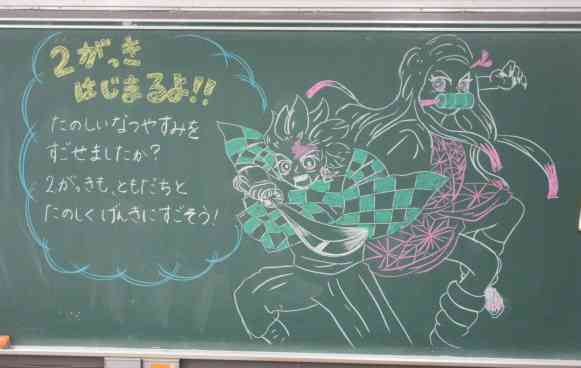 2がっき
はじまるよ!!
たのしいなつやすみを
すごせましたか?
2がっきも、ともだちと
たのしくげんきにすごそう!